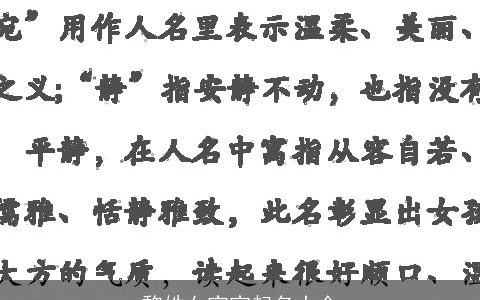 宛”用作人名里表示温柔、美丽、
之义;“静”指安静不动，也指没有
平静，在人名中寓指从容自若、
儒雅、恬静雅致，此名彰显出女孩
大方的气质，读起来很好顺口、温
黎姓女宝宝起名大全